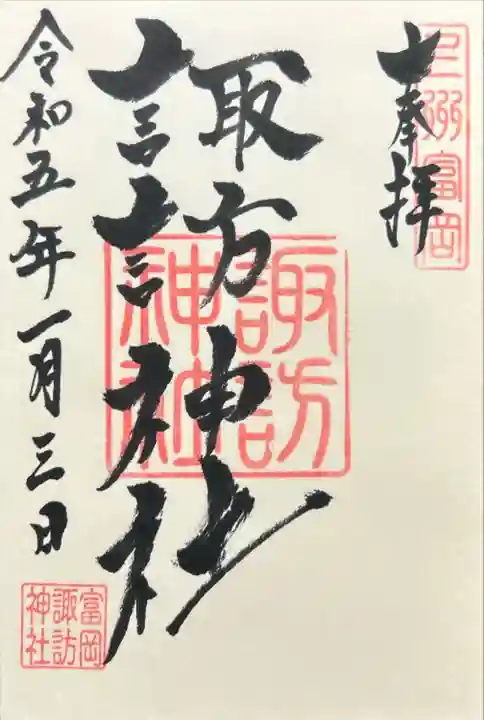 奉拝
富岡
諏訪神社
諏訪
神社
令和五年一月三日
富岡
諏訪
神社